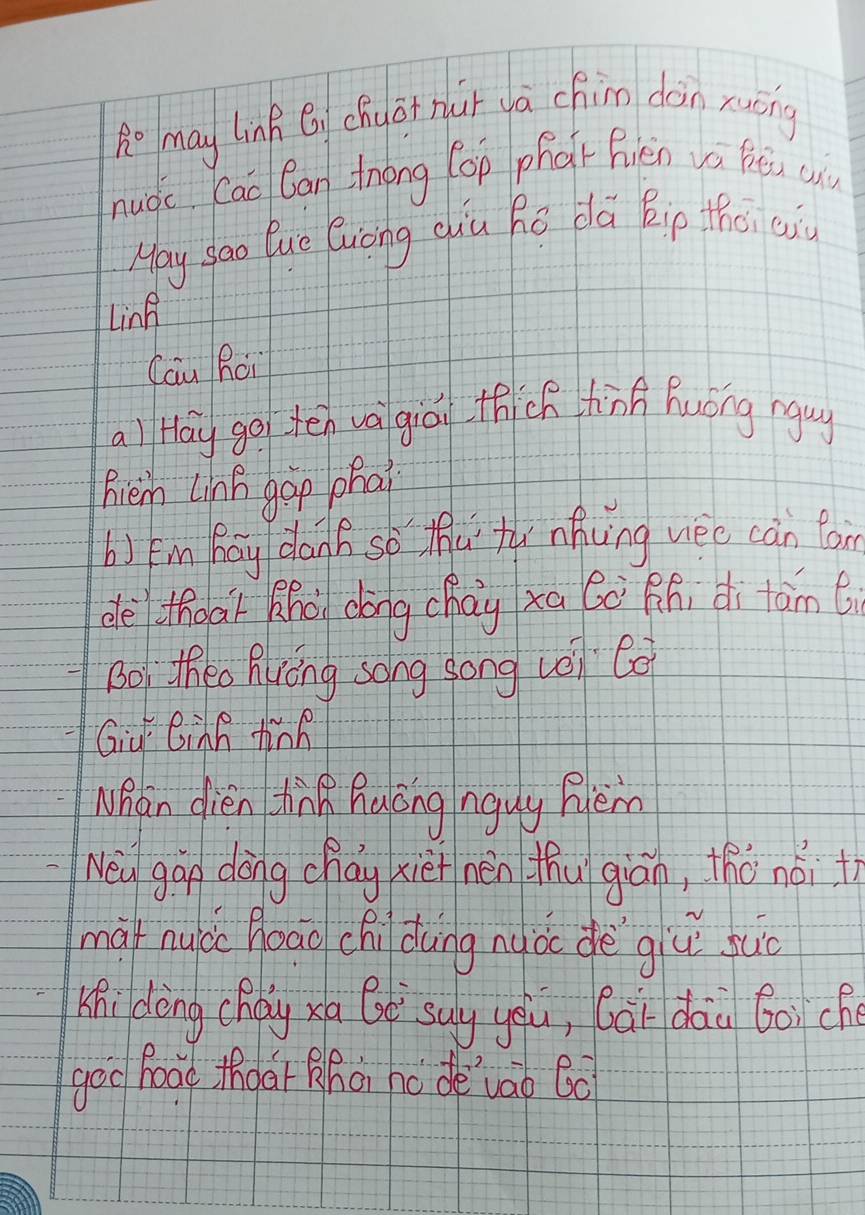 ko may Linh bị chuột rút và chìm dần xuống
nước. Các bạn trong lớp phát hiện và kêu cứu
May sao lực lượng cứu hộ đã kịp thời cứu
Linh
Câu hỏi
a) Hãy gọi tên và giải thích tình huống nguy
hiểm Linh gặp phải
b) Em hãy đánh số thứ tự những việc cần làm
để thoát khỏi dòng chảy xa bờ khi đi tắm
- Bơi theo hướng song song với bờ
- Giữ bình tĩnh
- Nhận diện tình huống nguy hiểm
- Nếu gặp dòng chảy xiết nên thư giãn, thả nổi
mặt nước hoặc chỉ đứng nước để giữ sức
- Khi dòng chảy xa bờ suy yếu, bắt đầu bơi
góc hoặc thoát khỏi nó để vào bờ